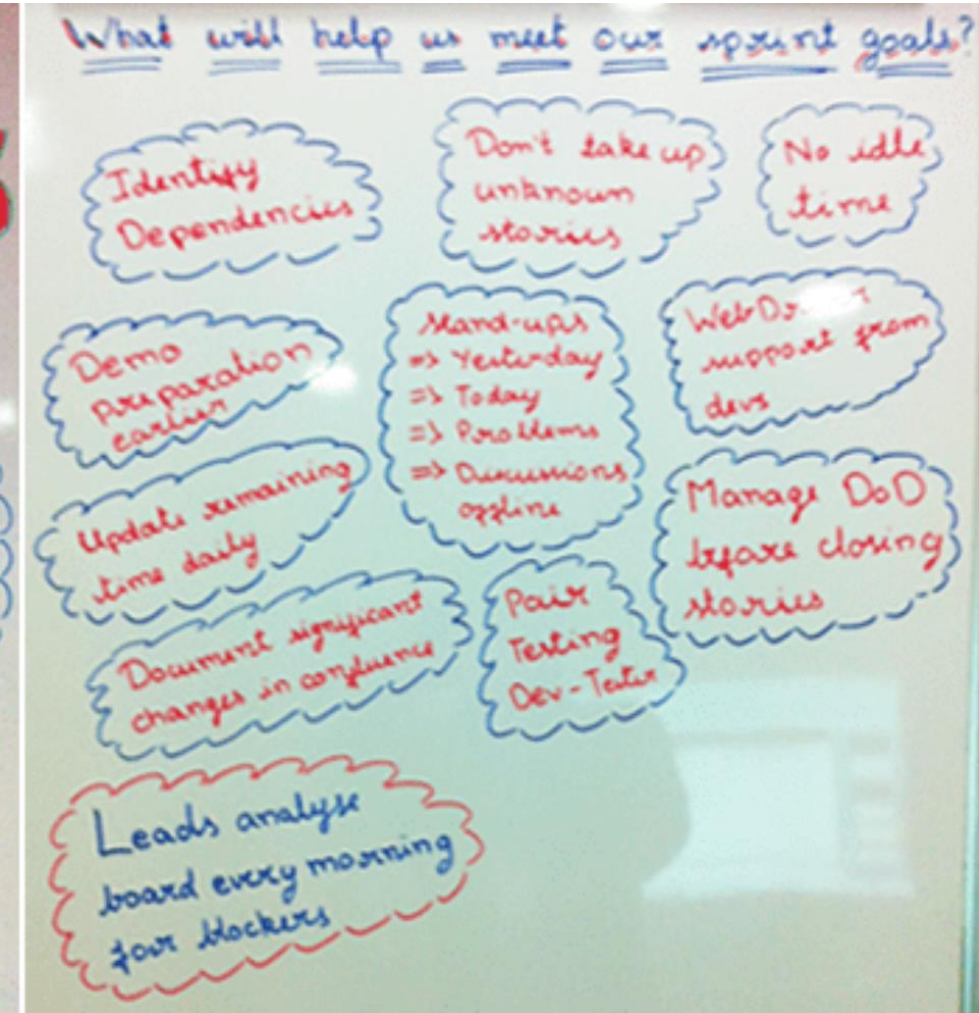 What will help us meet our sprint goals?
Identify
Dependencies
Don't take up
unknown
stories
No idle
time
Demo
preparation
earlier
Stand-ups
=> Yesterday
=> Today
=> Problems
=> Discussions
offline
support from
devs
Update remaining
time daily
Manage DoD
before closing
stories
Document significant
changes in confluence
Pair
Testing
Dev-Tester
Leads analyse
board every morning
for blockers